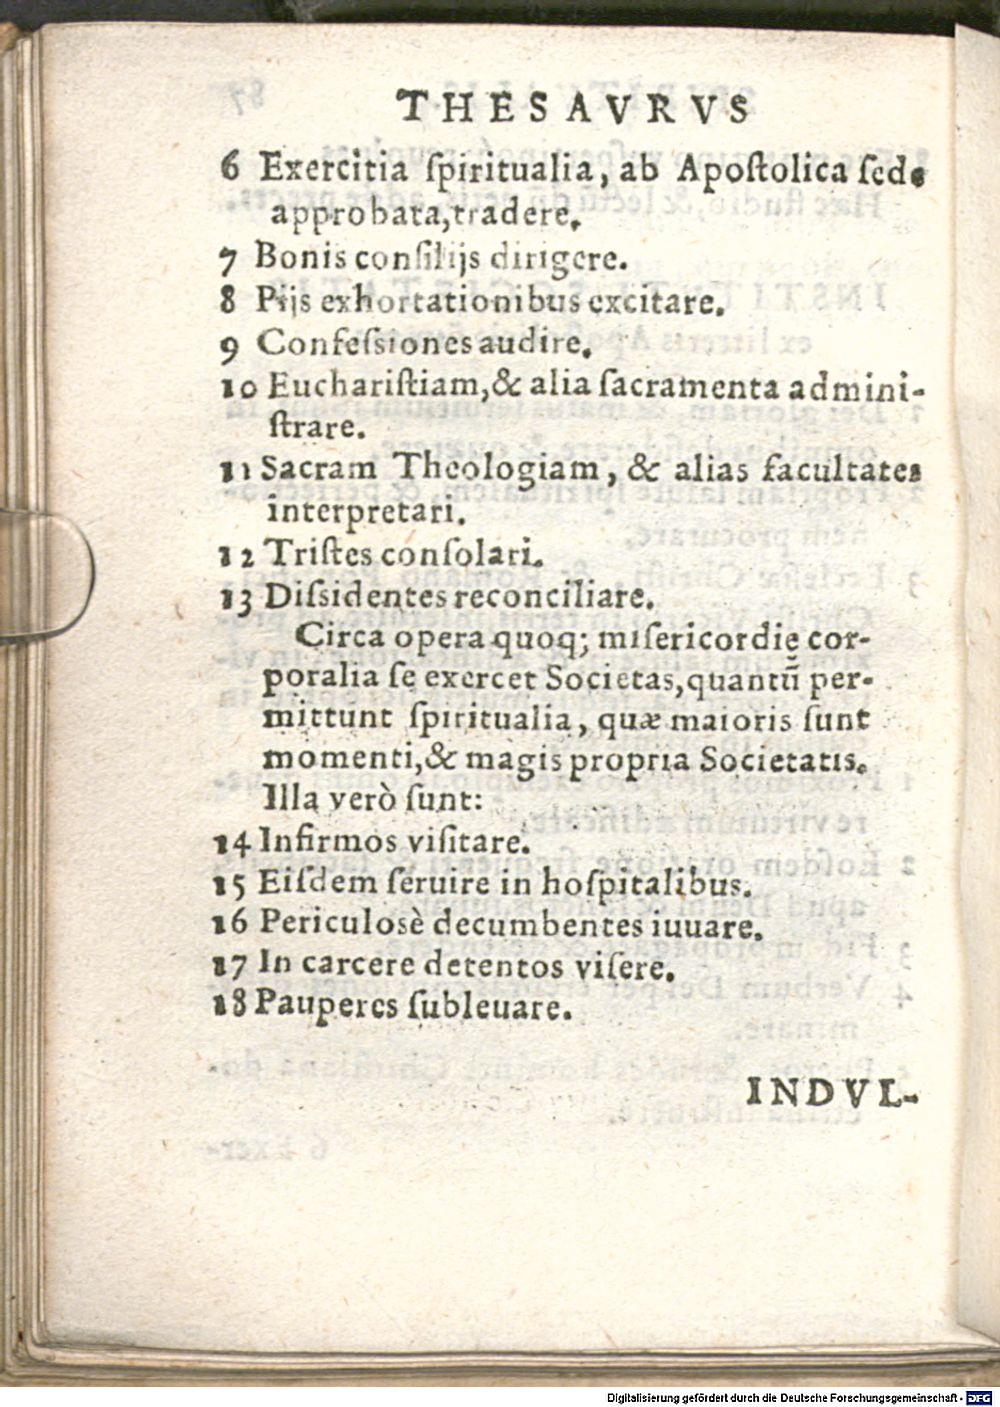 THESAVRVS
6 Exercitia ſpiritualia, ab Apoſtolica ſede
approbata, tradere.
7 Bonis conſilijs dirigere.
8 Pijs exhortationibus excitare.
9 Confeſsiones audire.
10 Euchariſtiam, & alia ſacramenta admini-
ſtrare.
11 Sacram Theologiam, & alias facultates
interpretari.
12 Triſtes conſolari.
13 Diſsidentes reconciliare.
Circa opera quoq; miſericordię cor-
poralia ſe exercet Societas, quantũ per-
mittunt ſpiritualia, quæ maioris ſunt
momenti, & magis propria Societatis.
Illa verò ſunt:
14 Infirmos viſitare.
15 Eiſdem ſeruire in hoſpitalibus.
16 Periculosè decumbentes iuuare.
17 In carcere detentos viſere.
18 Pauperes ſubleuare.
INDVL-
Digitalisierung gefördert durch die Deutsche Forschungsgemeinschaft - DFG